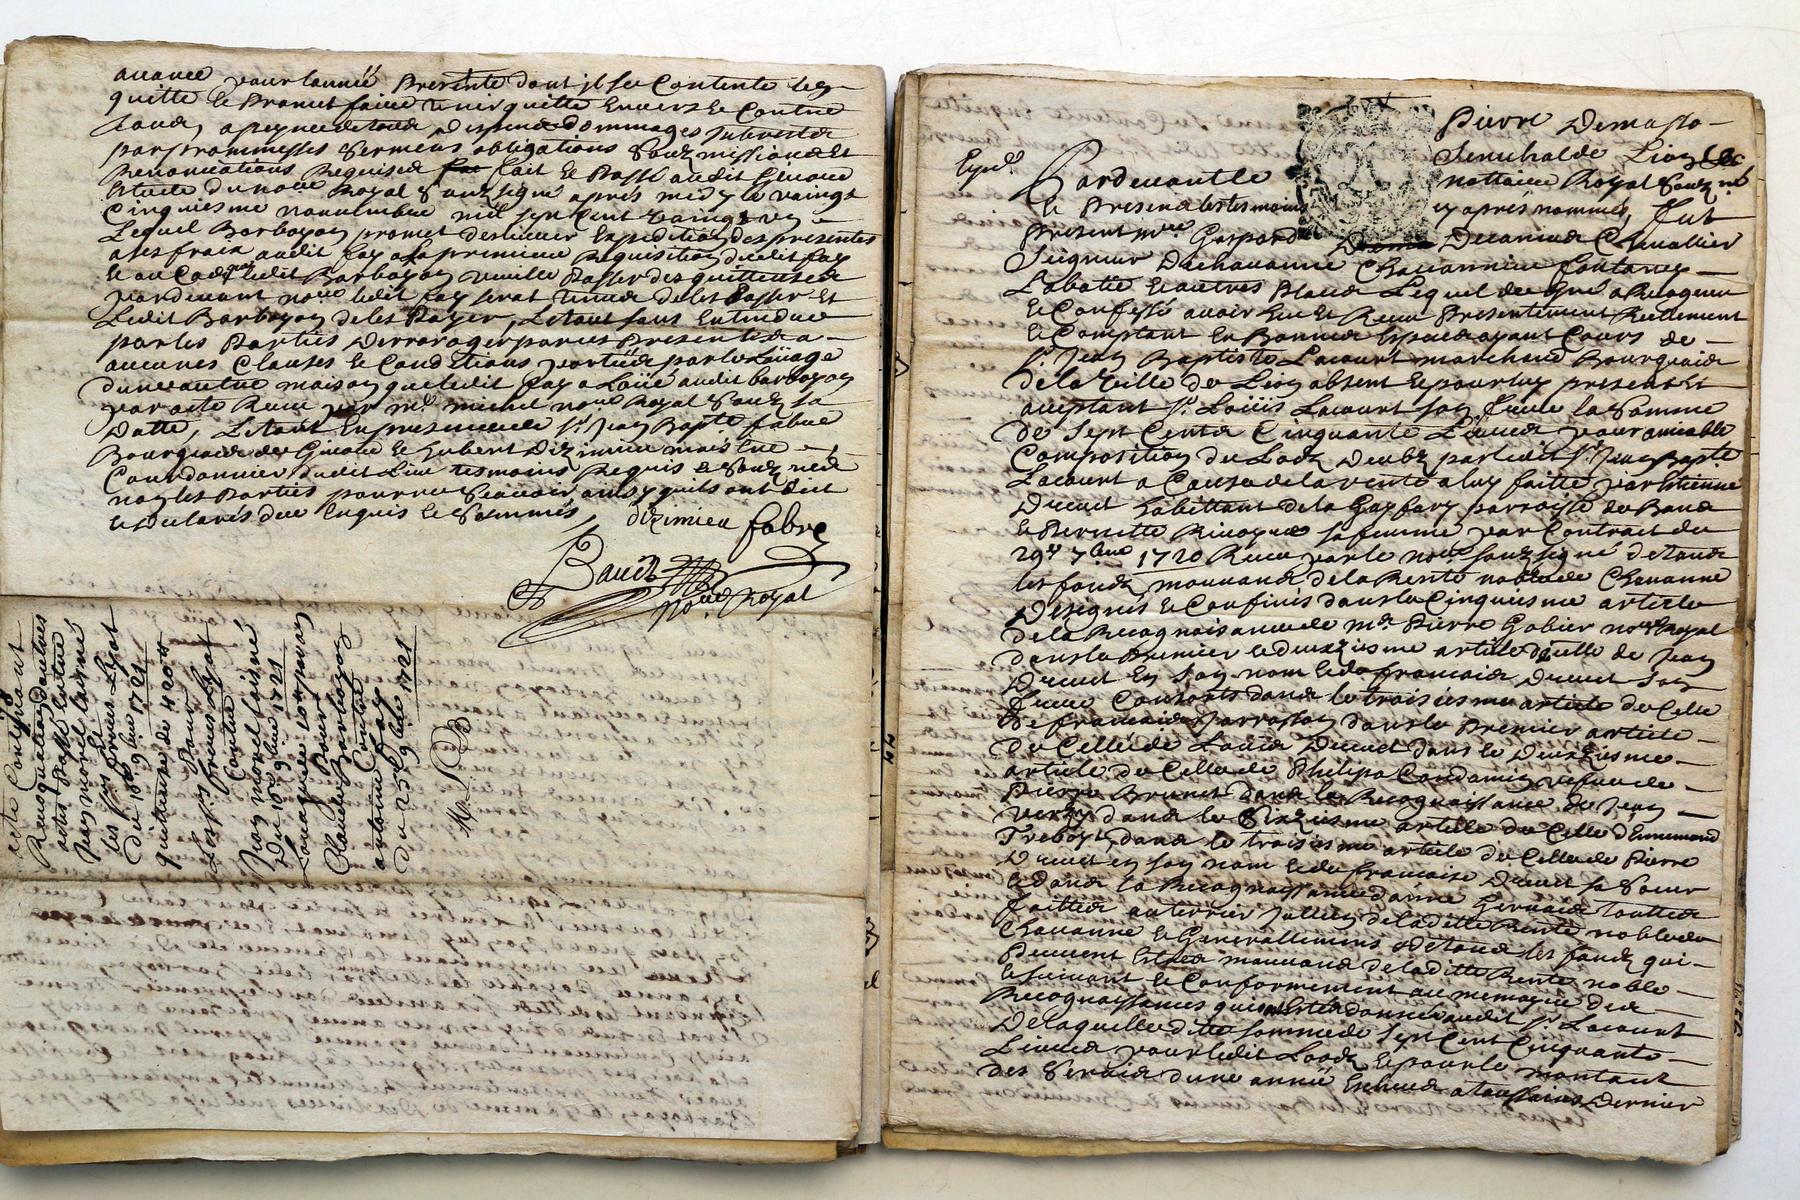 avance pour lannéé Presente dont jl se Contente len
quitte Et Promet faire tenir quitte Envers Et Contre
tous, a peyne de tous despens dommages Interests
par prommesses Sermens obligations Souzmissions Et
Renonciations Requises fait Et Passé audit
Estude du nore Royal Souzsigné aprés midy le vaingt
Cinquiesme novembre mil sept Cent vaingt vn
Lequel Barboyon promet deslivrer Expedition des presentes
a ses frais audit fay a la premiere Requisition dudit fay
Et au Cas que ledit Barboyon veuille Passer des quittences
pardevant nore ledit fay serat tenus de les Passer Et
Ledit Barboyon de les Payer, Le tout sans Entendre
par les Parties Derroger par ces Presentes a
aucunes Clauses Et Conditions portéés par le Loüage
dune autre maison que ledit fay a Loüé audit barboyon
par acte Receu par me michel nore Royal Souz sa
Datte, Le tout En presence de sr Jean Bapte fabre
Bourgeois de Et hubert Dizimieu mais tre
Courdonnier dudit Lieu tesmoins Requis Et Souz nés
non les Parties pour ne Scavoir ainsy quils ont dict
Et declarés de ce Enquis Et Sommés
dizimieu fabre
Baudz
nore royal
acte Contenant
Revoquation dautres
actes Passé Entre
Jean morel laisné
les srs freres Lyot
Du 18e 9bre 1721
quittance de 4200 tt
Pour
Les srs freres Lyot
Contre
Jean morel laisné
Du 18e 9bre 1721
Louage de
Pour
Claude Barboyon
Contre
antoine fay
du 25e 9bre 1721
Pierre Demasso
Senechal de Lion
Expé
Pardevant le nottaire Royal Souz né
Et Presens les tesmoins cy aprés nommés, fut
Present mre Gaspard Decamus Chevallier
Seigneur Duchavanne Chavannieu fontanes
Labatie Et autres Places Lequel de Gré a Recogneu
Et Confessé avoir heu Et Receu Presentement Reellement
Et Comptant En Bonnes Especes ayant Cours de
sr Jean Baptiste Lacourt marchand Bourgeois
de la Ville de Lion absent Et pour luy present Et
acceptant sr Loüis Lacourt son frere la Somme
de Sept Cents Cinquante Livres pour amiable
Composition de Lodz Deubz par ledit sr Jean Bapte
Lacourt a Cause de la vente a luy faitte par Estienne
Ducret habittant de la parroisse de
Et Pernette sa femme par Contrat du
29e 7bre 1720 Receu par le nore souzsigné de tous
les fondz mouvans de la Rente noble de Chavanne
Designés Et Confinés dans le Cinquiesme article
de la Recognoissance de me Pierre Gabier nore Royal
dans le Premier Et deuxziesme article dicelle de Jean
Ducret En son nom Et de francois Ducret son
frere Consorts dans le troisiesme article de Celle
De francois dans le Premier article
de Celle de Louis Ducret dans le Deuxziesme
article de Celle de Philipa Condamin vefve de
Pierre Brunet dans la Recognoissance de Jean
dans le Sixziesme article de Celle dEnnemond
Treboz, dans le troisiesme article de Celle de Pierre
Ducret en son nom Et de francoise Ducret sa Soeur
Et dans la Recognoissance danne Gervais touttes
faittes au terrier Jullien de laditte Rente noble de
Chavanne Et Generallement de tous les fondz qui
Peuvent Estre mouvans de laditte Rente noble
Et suivant Et Conformement au memoire des
Recognoissances qui at Esté donné audit sr Lacourt
De laquelle ditte somme de sept Cent Cinquante
Livres pour ledit Lodz Et pour le montant
des Servis dune annéé Escheue a toussains Dernier